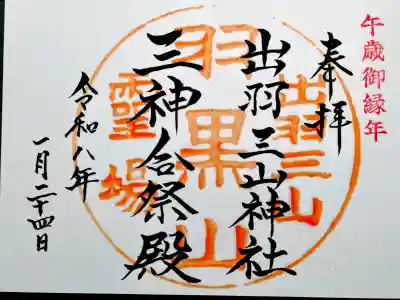 午歳御縁年
奉拝
出羽三山神社
三神合祭殿
令和八年
一月二十四日
出羽三山
羽黒山
霊場